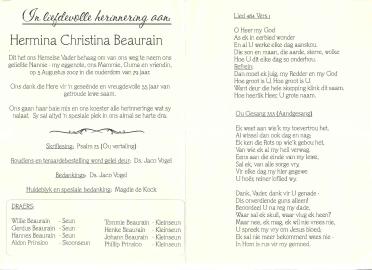 In liefdevolle herinnering aan.
Hermina Christina Beaurain
Dit het ons Hemelse Vader behaag om van ons weg te neem ons
geliefde Hannie - my eggenote, ons Mammie, Ouma en vriendin,
op 5 Augustus 2002 in die ouderdom van 79 jaar.
Ons dank die Here vir 'n geseënde en vreugdevolle 55 jaar van
getroude lewe saam.
Ons gaan haar baie mis en ons koester alle herinneringe wat sy
nalaat. Sy sal altyd 'n spesiale plek in ons almal se harte dra.
Skriflesing: Psalm 23 (Ou vertaling)
Roudiens en teraardebestelling word gelei deur: Ds. Jaco Vogel
Bedankings: Ds. Jaco Vogel
Huldeblyk en spesiale bedanking: Magdie de Kock
DRAERS:
Willie Beaurain - Seun
Gerrius Beaurain - Seun
Hannes Beaurain - Seun
Aldon Prinsloo - Skoonseun
Tommie Beaurain - Kleinseun
Henke Beaurain - Kleinseun
Johann Beaurain - Kleinseun
Phillip Prinsloo - Kleinseun
Lied 464 Vers 1
O Heer my God
As ek in eerbied wonder
En al U werke elke dag aanskou.
Die son en maan, die aarde, sterre, wolke
Hoe U dit elke dag so onderhou.
Refrein
Dan moet ek juig, my Redder en my God
Hoe groot is U, Hoe groot is U.
Want deur die hele skepping klink dit saam.
Hoe heerlik Heer, U grote naam.
Ou Gesang 155 (Aandgesang)
Ek weet aan wie ek my toevertrou het,
Al wissel dan ook dag en nag;
Ek ken die Rots op wie'k gebou het,
Van wie ek al my heil verwag.
Eens aan die einde van my lewe,
Sal ek, van alle sorge vry,
Vir elke dag my hier gegewe
U hoër, reiner loflied wy.
Dank, Vader, dank vir U genade -
Dis onverdiende guns alleen!
Beoordeel U na reg my dade,
Waar sal ek skuil, waar vlug ek heen?
Maar nee, ek mag, ek wil nie vrees nie,
U spreek my vry om Jesus bloed;
Ek sal nie meer bekommerd wees nie -
In Hom is nou vir my gemoed.